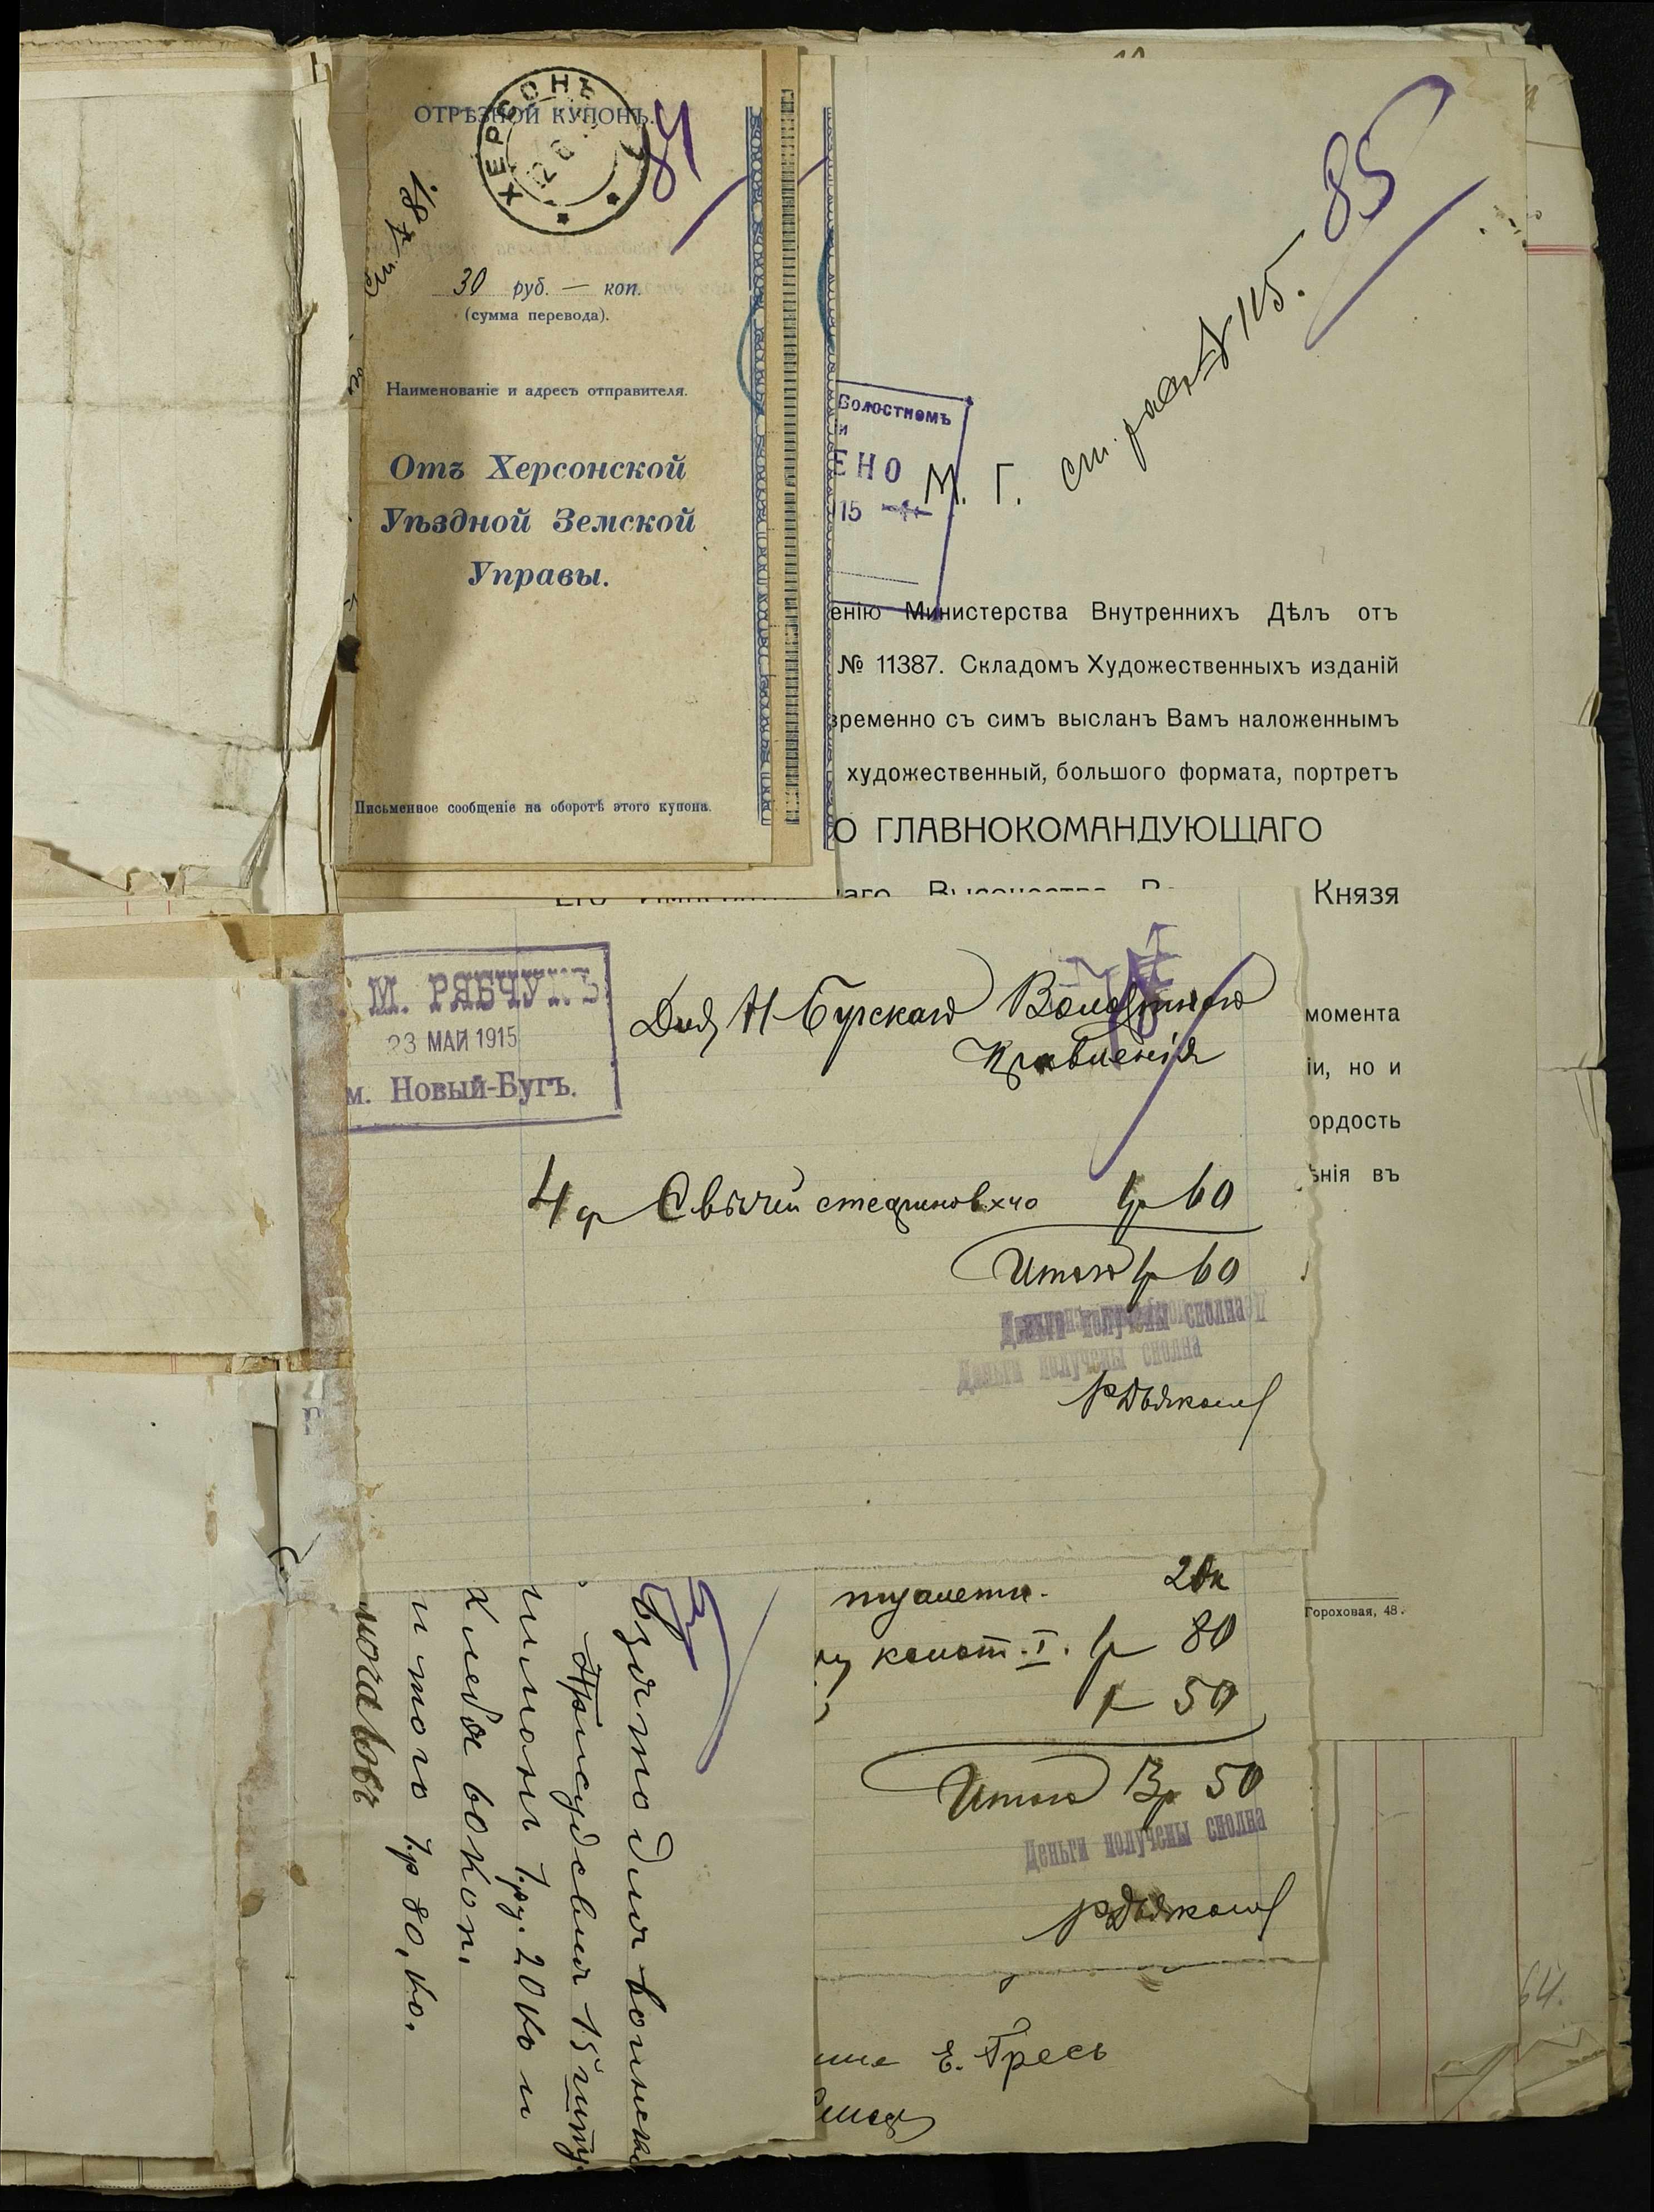 ОТРѢЗНОЙ КУПОНЪ.
ХЕРСОНЪ
84
30 руб. — коп.
(сумма перевода).
Наименованіе и адресъ отправителя.
Отъ Херсонской
Уѣздной Земской
Управы.
Письменное сообщеніе на оборотѣ этого купона.
85
ст. расх № 115.
Волостномъ
ЕНО
15
М. Г.
енію Министерства Внутреннихъ Дѣлъ отъ
№ 11387. Складомъ Художественныхъ изданій
временно съ симъ высланъ Вамъ наложеннымъ
художественный, большого формата, портретъ
О ГЛАВНОКОМАНДУЮЩАГО
Князя
момента
іи, но и
ордость
ѣнія въ
Гороховая, 48.
М. РЯБЧУКЪ
23 МАЙ 1915
м. Новый-Бугъ.
Для Н Бугскаго Волостного
Правленія
4 ф Свѣчей стеариновхъ 1р 60
Итого 1р 60
Деньги получены сполна
Деньги получены сполна
туалетн. 20к
конт. I. 1р 80
1р 50
Итого 3р 50
Деньги получены сполна
Е. Гресь
Взято для воинско
Присудсвия 15 шту
1.ру. 20 ко и
хлеба 60 коп.
итого 1.р 80, ко.
64.